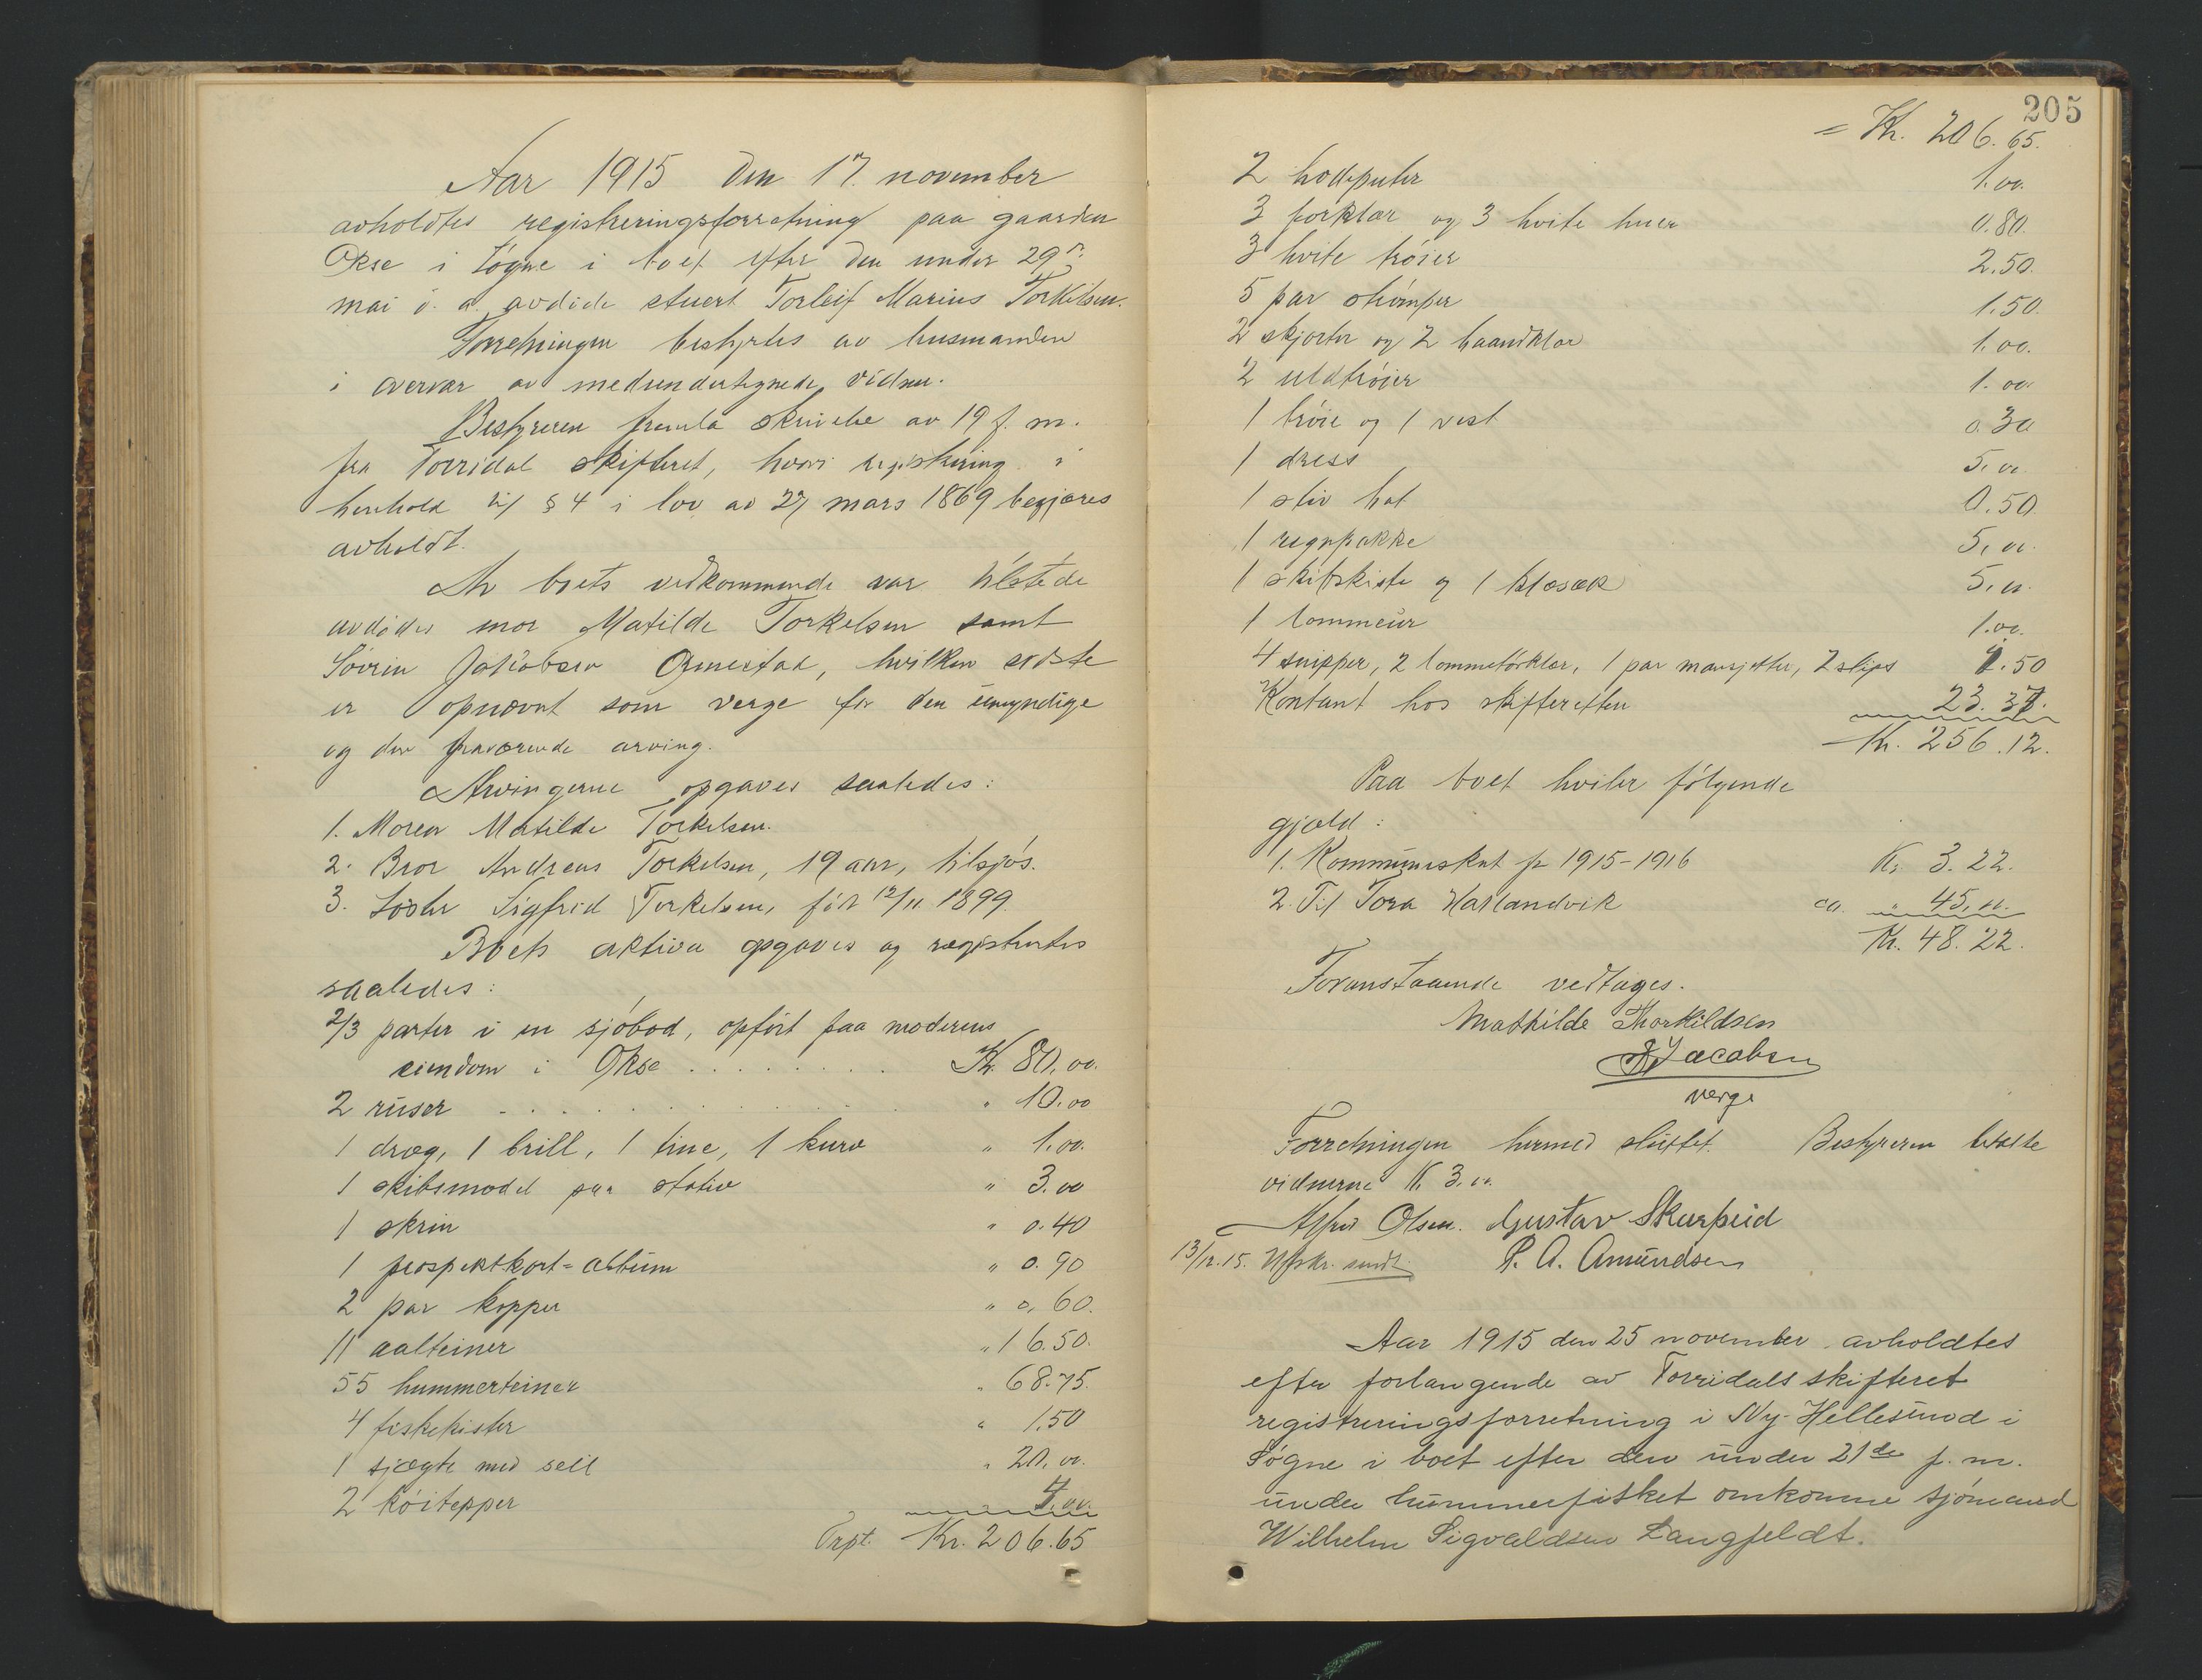 Aar 1915 den 17. november
avholdtes registreringsforretning paa gaarden
Okse i Søgne i boet efter den under 29de
mai d. a. avdøde stuert Torleif Marius Torkelsen.
Forretningen bestyrtes av lensmanden
i overvær av medundertegnede vidner.
Bestyreren fremla skrivelse av 19 f. m.
fra Torridal skifteret, hvori registrering i
henhold til § 4 i lov av 27 mars 1869 begjæres
avholdt.
Av boets vedkommende var tilstede
avdødes mor Matilde Torkelsen samt
Søvrin Jakobsen Ormestad, hvilken sidste
er opnævnt som verge for den umyndige
og den fraværende arving.
Arvingerne opgaves saaledes:
1. Moren Matilde Torkelsen.
2. Bror Andreas Torkelsen, 19 aar, tilsjøs.
3. Søster Sigfrid Torkelsen, født 12/11 1899.
Boets aktiva opgaves og registrertes
saaledes:
2/3 parter i en sjøbod, opført paa moderens
eiendom i Okse . . . . . . . . Kr. 80,00.
2 ruser . . . . . . . . . " 10.00
1 dræg, 1 brill, 1 tine, 1 kurv " 1.00.
1 skibsmodel paa stativ " 3.00
1 skrin " 0.40
1 prospektkort-album " 0.90
2 par kopper " 0.60.
11 aalteiner " 16.50.
55 hummerteiner " 68.75.
4 fiskekister " 1.50
1 sjægte med seil " 20,00.
2 køitepper 4.00.
Trpt. Kr. 206.65
205
= Kr. 206.65.
2 hodeputer 1.00.
3 forklær og 3 hvite huer 0.80.
3 hvite trøier 2.50.
5 par strømper 1.50.
2 skjorter og 2 haandklær 1.00.
2 uldtrøier 1.00
1 trøie og 1 vest 0.30
1 dress 5.00
1 stiv hat 0.50
1 regnfrakke 5,00.
1 skibskiste og 1 klæsæk 5,00.
1 lommeur 1.00.
4 snipper, 2 lommetørklær, 1 par mansjetter, 2 slips 1.50
Kontant hos skifteretten 23.37.
Kr. 256.12.
Paa boet hviler følgende
gjæld:
1. Kommuneskat for 1915-1916 Kr. 3.22.
2. Til Tora Haslandvik ca. " 45,00.
Kr. 48.22.
Foranstaaende vedtages.
Mathilde Thorkildsen
S Jacobsen
verge
Forretningen hermed sluttet. Bestyreren betalte
vidnerne Kr. 3.00.
Alfred Olsen. Gustav Skarpeid
13/12.15. Utskr. sendt. P. A. Amundsen
Aar 1915 den 25 november avholdtes
efter forlangende av Torridals skifteret
registreringsforretning i Ny-Hellesund i
Søgne i boet efter den under 21de f. m.
under hummerfisket omkomne sjømand
Wilhelm Sigvaldsen Langfeldt.